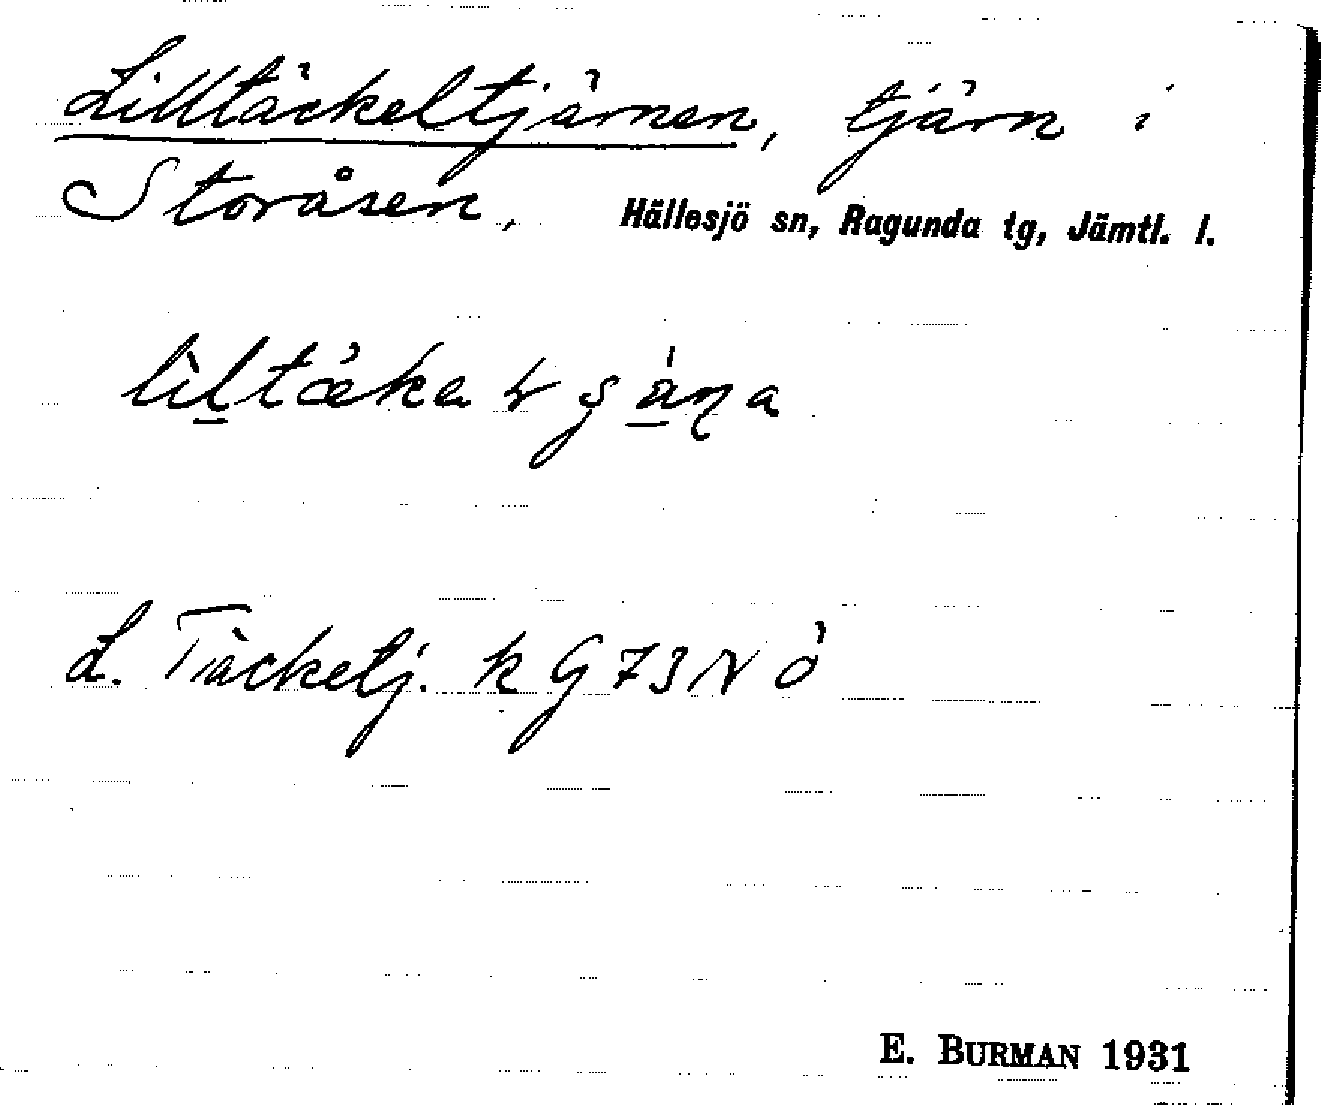 Lilltäckeltjärnen, tjärn i
Storåsen, Hällesjö sn, Ragunda tg, Jämtl. l.
L. Täckeltj. k G 73 N Ö
E. BURMAN 1931